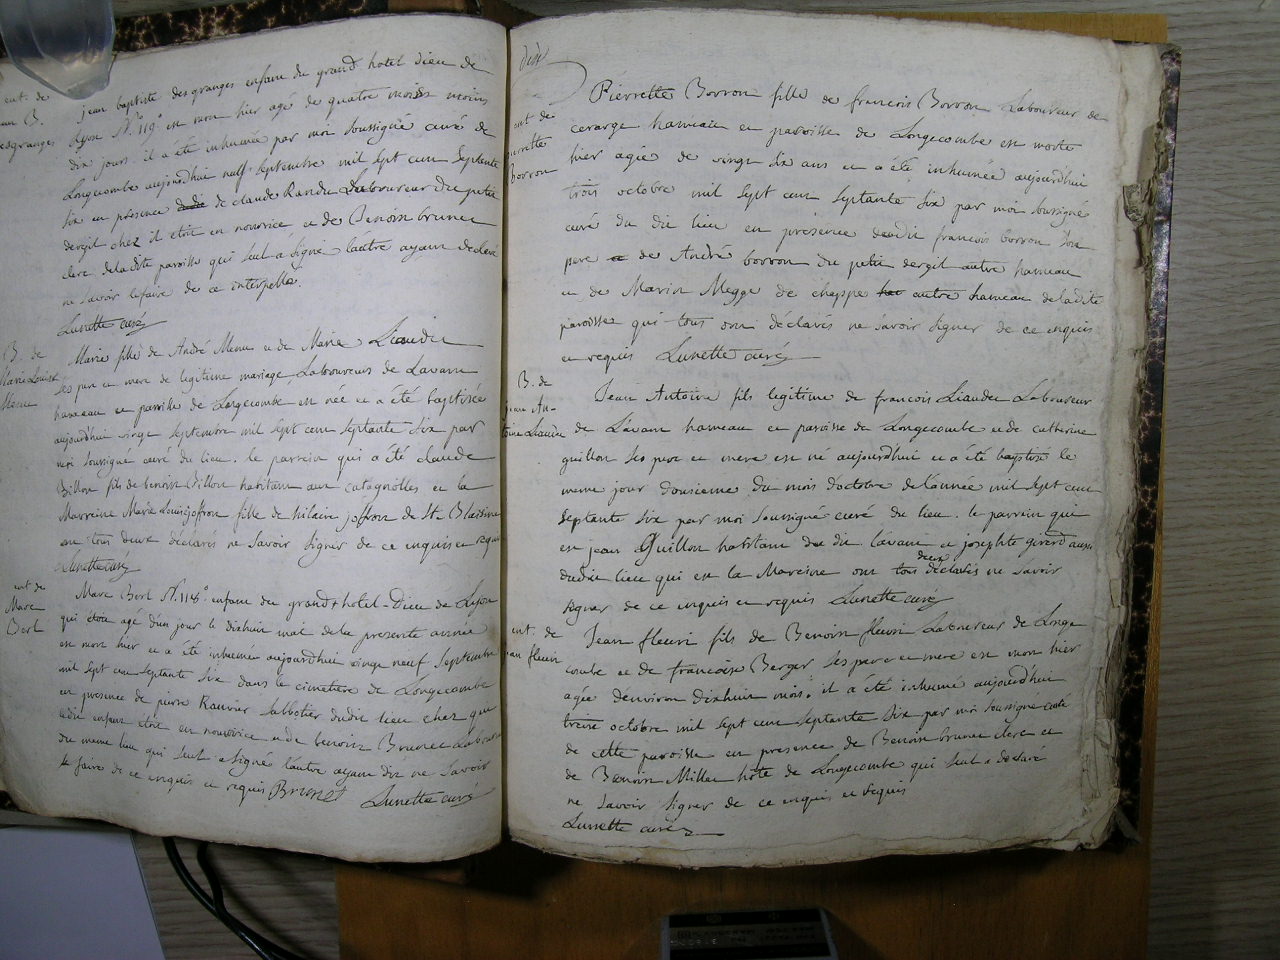 ent. de
jean B.
desgranges
jean baptiste des granges enfant du grand hotel dieu de
Lyon N.º 119º est mort hier agé de quatre mois moins
dix jours il a été inhumé par moi soussigné curé de
Longecombe aujourdhui neuf septembre mil sept cent septante
six en présence de claude Randu Laboureur du petit
dergil chez il etoit en nourrice et de Benoist brunet
clerc de la dite paroisse qui seul a signé l'autre ayant declaré
ne savoir le faire de ce interpellé.
Lunette curé
B. de
Marie Louise
Menu
Marie fille de André Menu et de Marie Liaudet
ses pere et mere de legitime mariage, Laboureurs de Lavant
hameau et paroisse de Longecombe est née et a été baptisée
aujourdhui vingt septembre mil sept cent septante six par
moi soussigné curé du lieu. le parrein qui a été claude
Billon fils de benoist Billon habitant aux catagnolles et la
Marreine Marie Louise joffron fille de hilaire joffron de St. Blaisine
ont tous deux déclarés ne savoir signer de ce enquis et requis
Lunette curé
ent de
Marc
Borl
Marc Borl N.º 1148º enfant du grand hotel-Dieu de Lyon
qui étoit agé d'un jour le dixhuit mai de la presente année
est mort hier et a été inhumé aujourdhui vingt neuf septembre
mil sept cent septante six dans le cimetiere de Longecombe
en presence de pierre Ravier sabbotier dudit lieu chez qui
ledit enfant étoit en nourrice et de benoist Brunet Laboureur
du meme lieu qui seul a signé l'autre ayant dit ne savoir
le faire de ce enquis et requis Brunet Lunette curé
ent de
pierrette
Borron
Pierrette Borron fille de francois Borron Laboureur de
cerarge hameau et paroisse de Longecombe est morte
hier agée de vingt six ans et a été inhumée aujourdhui
trois octobre mil sept cent septante six par moi soussigné
curé du dit lieu en présence dudit francois borron son
pere et de André borron du petit dergil autre hameau
et de Marin Megge de chappe autre hameau de la dite
paroisse qui tous ont déclarés ne savoir signer de ce enquis
et requis Lunette curé
B. de
jean An-
toine Liaudet
Jean Antoine fils legitime de francois Liaudet Laboureur
de Lavant hameau et paroisse de Longecombe et de catherine
guillon ses pere et mere est né aujourdhui et a été baptisé le
meme jour douzieme du mois d'octobre de l'année mil sept cent
septante six par moi soussigné curé du lieu. le parrein qui
est jean Guillon habitant du dit lavant et josephte girerd aussi
dudit lieu qui est la Marreine ont tous deux déclarés ne savoir
signer de ce enquis et requis Lunette curé
ent. de
jean fleuri
Jean fleuri fils de Benoist fleuri Laboureur de Longe
combe et de francoise Berger ses pere et mere est mort hier
agée d'environ dixhuit mois; il a été inhumé aujourdhui
treize octobre mil sept cent septante six par moi soussigné curé
de cette paroisse en presence de Benoist brunet clerc et
de Benoist Millet hôte de Longecombe qui seul a déclaré
ne savoir signer de ce enquis et requis
Lunette curé